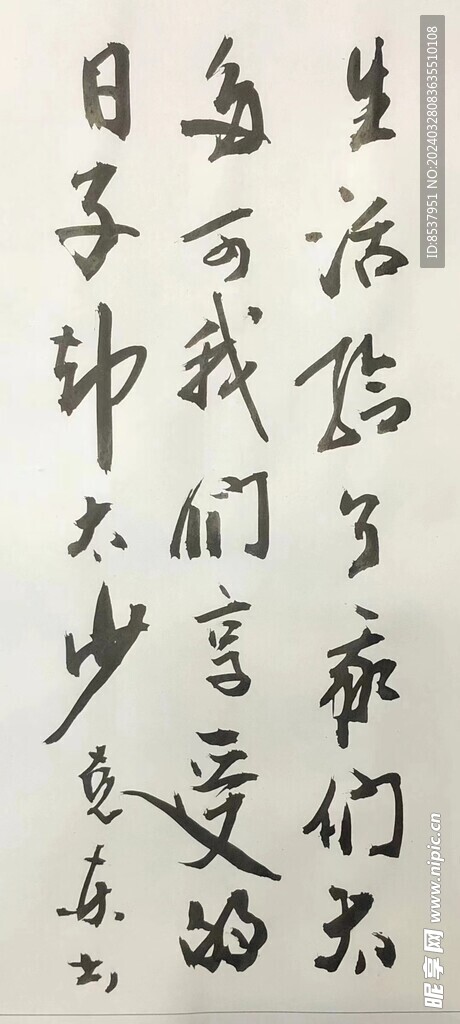 生活给了我们太
多可我们享受的
日子却太少 克东书
ID:8537951 NO:20240328083635510108
昵享网 www.nipic.cn